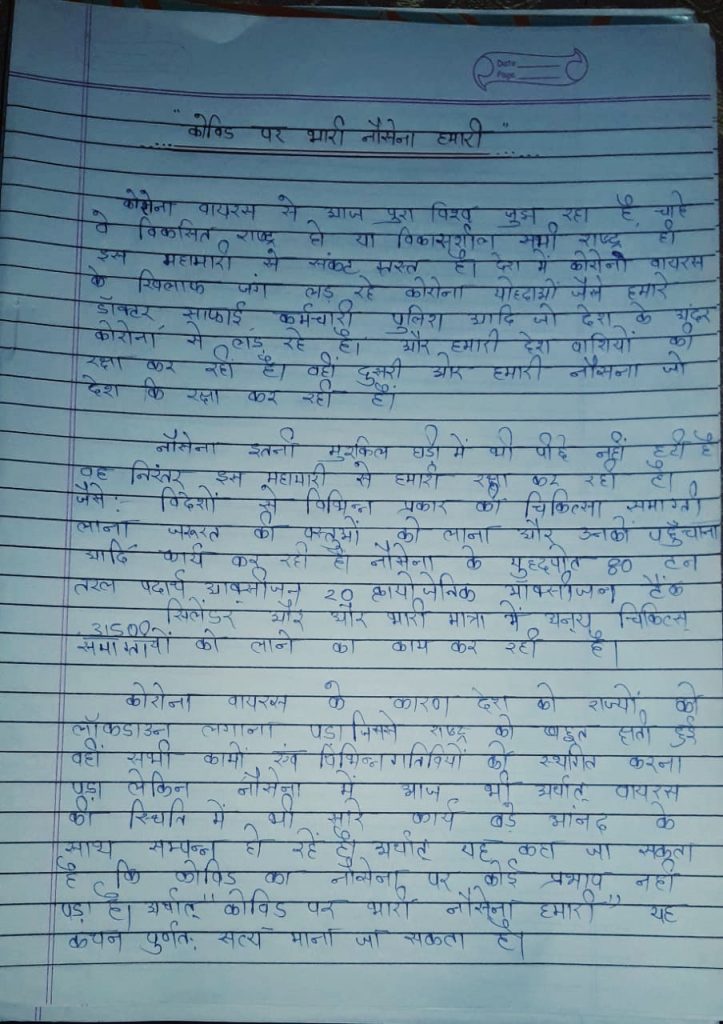 Date
Page
"कोविड पर भारी नौसेना हमारी"
कोरोना वायरस से आज पुरा विश्व जुझ रहा है, चाहे
वे विकसित राष्ट्र हो या विकासशील सभी राष्ट्र ही
इस महामारी से संकट ग्रस्त है। देश में कोरोना वायरस
के खिलाफ जंग लड़ रहे कोरोना योध्दाओं जैसे हमारे
डॉक्टर साफाई कर्मचारी पुलिश आदि जो देश के अंदर
कोरोना से लड़ रहे है। और हमारी देश वाशियों की
रक्षा कर रहीं है। वही दुसरी और हमारी नौसेना जो
देश कि रक्षा कर रही है।
नौसेना इतनी मुश्किल घडी में भी पीछे नहीं हटी है
वह निरंतर इस महामारी से हमारी रक्षा कर रही है।
जैसे: विदेशों से विभिन्न प्रकार की चिकित्सा समाग्री
लाना जरूरत की वस्तुओं को लाना और उनको पहुँचाना
आदि कार्य कर रही है। नौसेना के युध्दपोत 80 टन
तरल पदार्थ आक्सीजन 20 क्रायोजेनिक आक्सीजन टैंक
31500 सिलेंडर और और भारी मात्रा में अन्य चिकित्स
समाग्रीयों को लाने का काम कर रही है।
कोरोना वायरस के कारण देश को राज्यों को
लॉकडाउन लगाना पडा जिससे राष्ट्र को बहुत क्षती हुई
वहीं सभी कामों एंव विभिन्न गतिविधियों को स्थगित करना
पड़ा लेकिन नौसेना में आज भी अर्थात् वायरस
की स्थिति में भी सारे कार्य बड़े आंनद के
साथ सम्पन्न हो रहें है। अर्थात् यह कहा जा सकता
है कि कोविड का नौसेना पर कोई प्रभाव नहीं
पड़ा है। अर्थात् "कोविड पर भारी नौसेना हमारी" यह
कथन पुर्णत: सत्य माना जा सकता है।